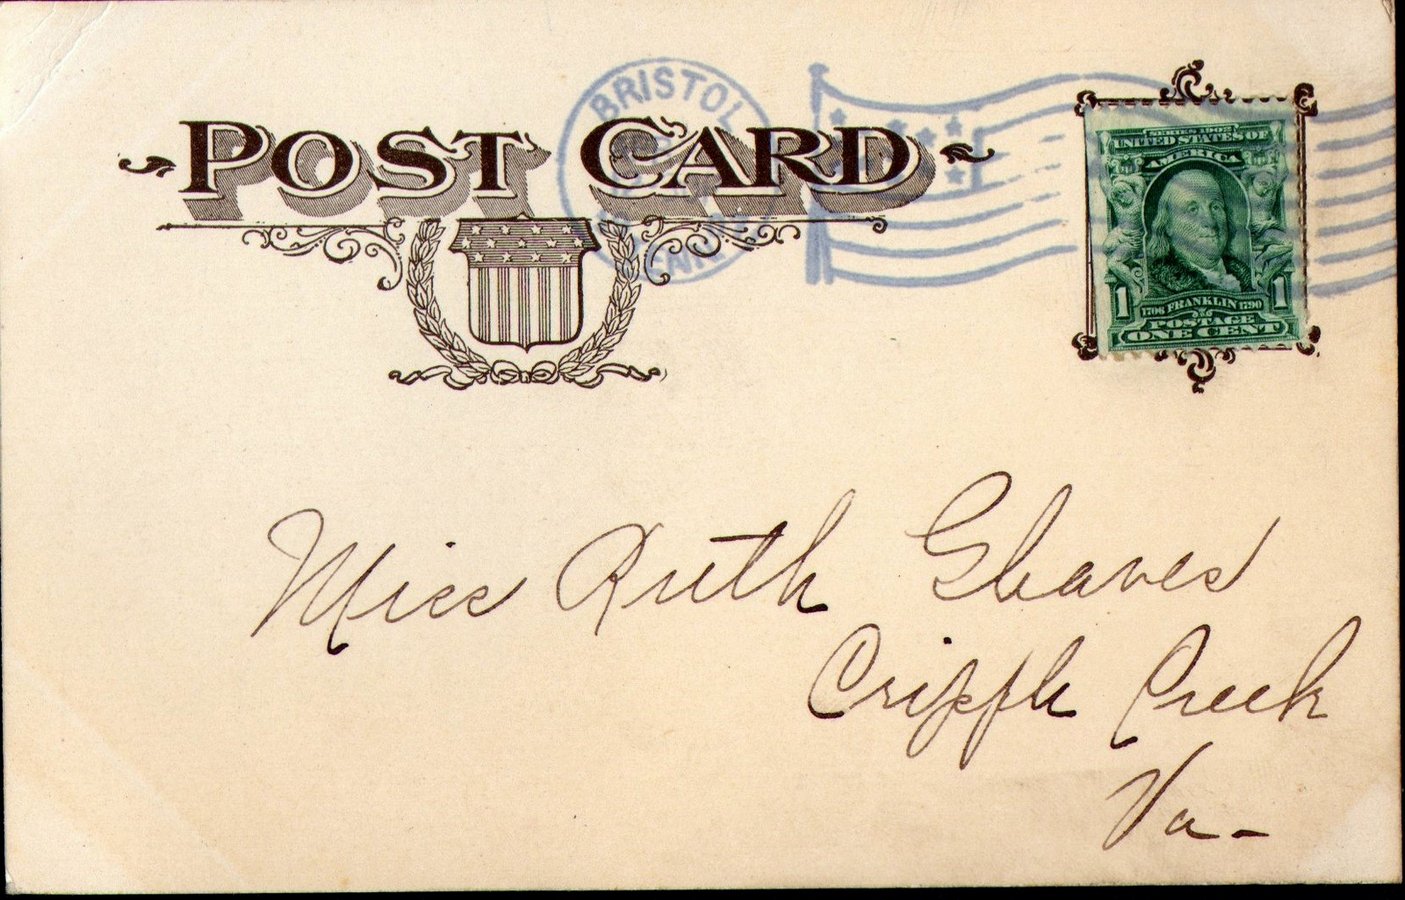 POST CARD
BRISTOL
SERIES 1902
UNITED STATES OF
AMERICA
1 1706 FRANKLIN 1790 1
POSTAGE
ONE CENT
Miss Ruth Gleaves
Cripple Creek
Va-